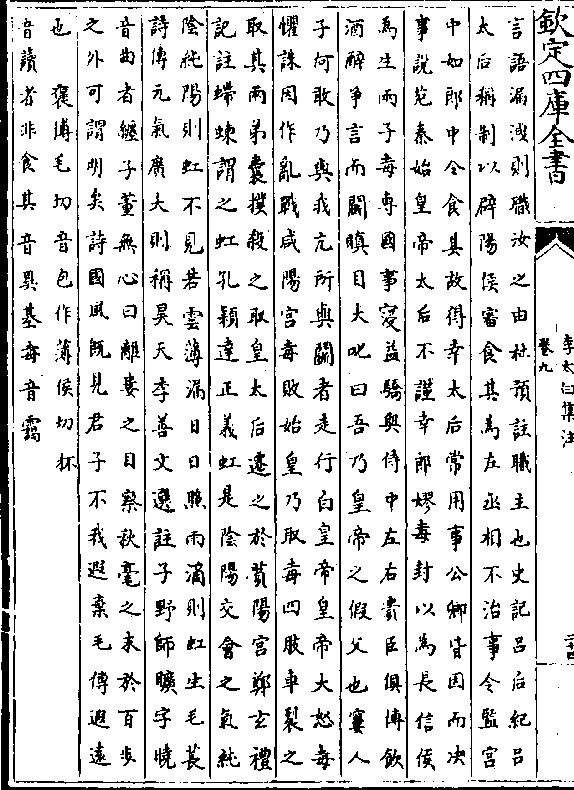 欽定四庫全書
李太白集注
卷九
二十四
言語漏洩則職汝之由杜預註職主也史記呂后紀呂
太后稱制以辟陽侯審食其為左丞相不治事令監宮
中如郎中令食其故得幸太后常用事公卿皆因而決
事說苑秦始皇帝太后不謹幸郎嫪毐封以為長信侯
為生兩子毐專國事寖益驕奢與侍中左右貴臣俱博飲
酒醉爭言而鬬瞋目大叱曰吾乃皇帝之假父也寠人
子何敢乃與我亢所與鬬者走行白皇帝皇帝大怒毐
懼誅因作亂戰咸陽宮毐敗始皇乃取毐四肢車裂之
取其兩弟囊撲殺之取皇太后遷之於萯陽宮鄭玄禮
記註螮蝀謂之虹孔穎達正義虹是陰陽交會之氣純
陰純陽則虹不見若雲薄漏日日照雨滴則虹生毛萇
詩傳元氣廣大則稱昊天李善文選註子野師曠字曉
音曲者纏子董無心曰離婁之目察秋毫之末於百步
之外可謂明矣詩國風既見君子不我遐棄毛傳遐遠
也 褒博毛切音包作薄侯切抔
音讀者非食其音異基毐音靄